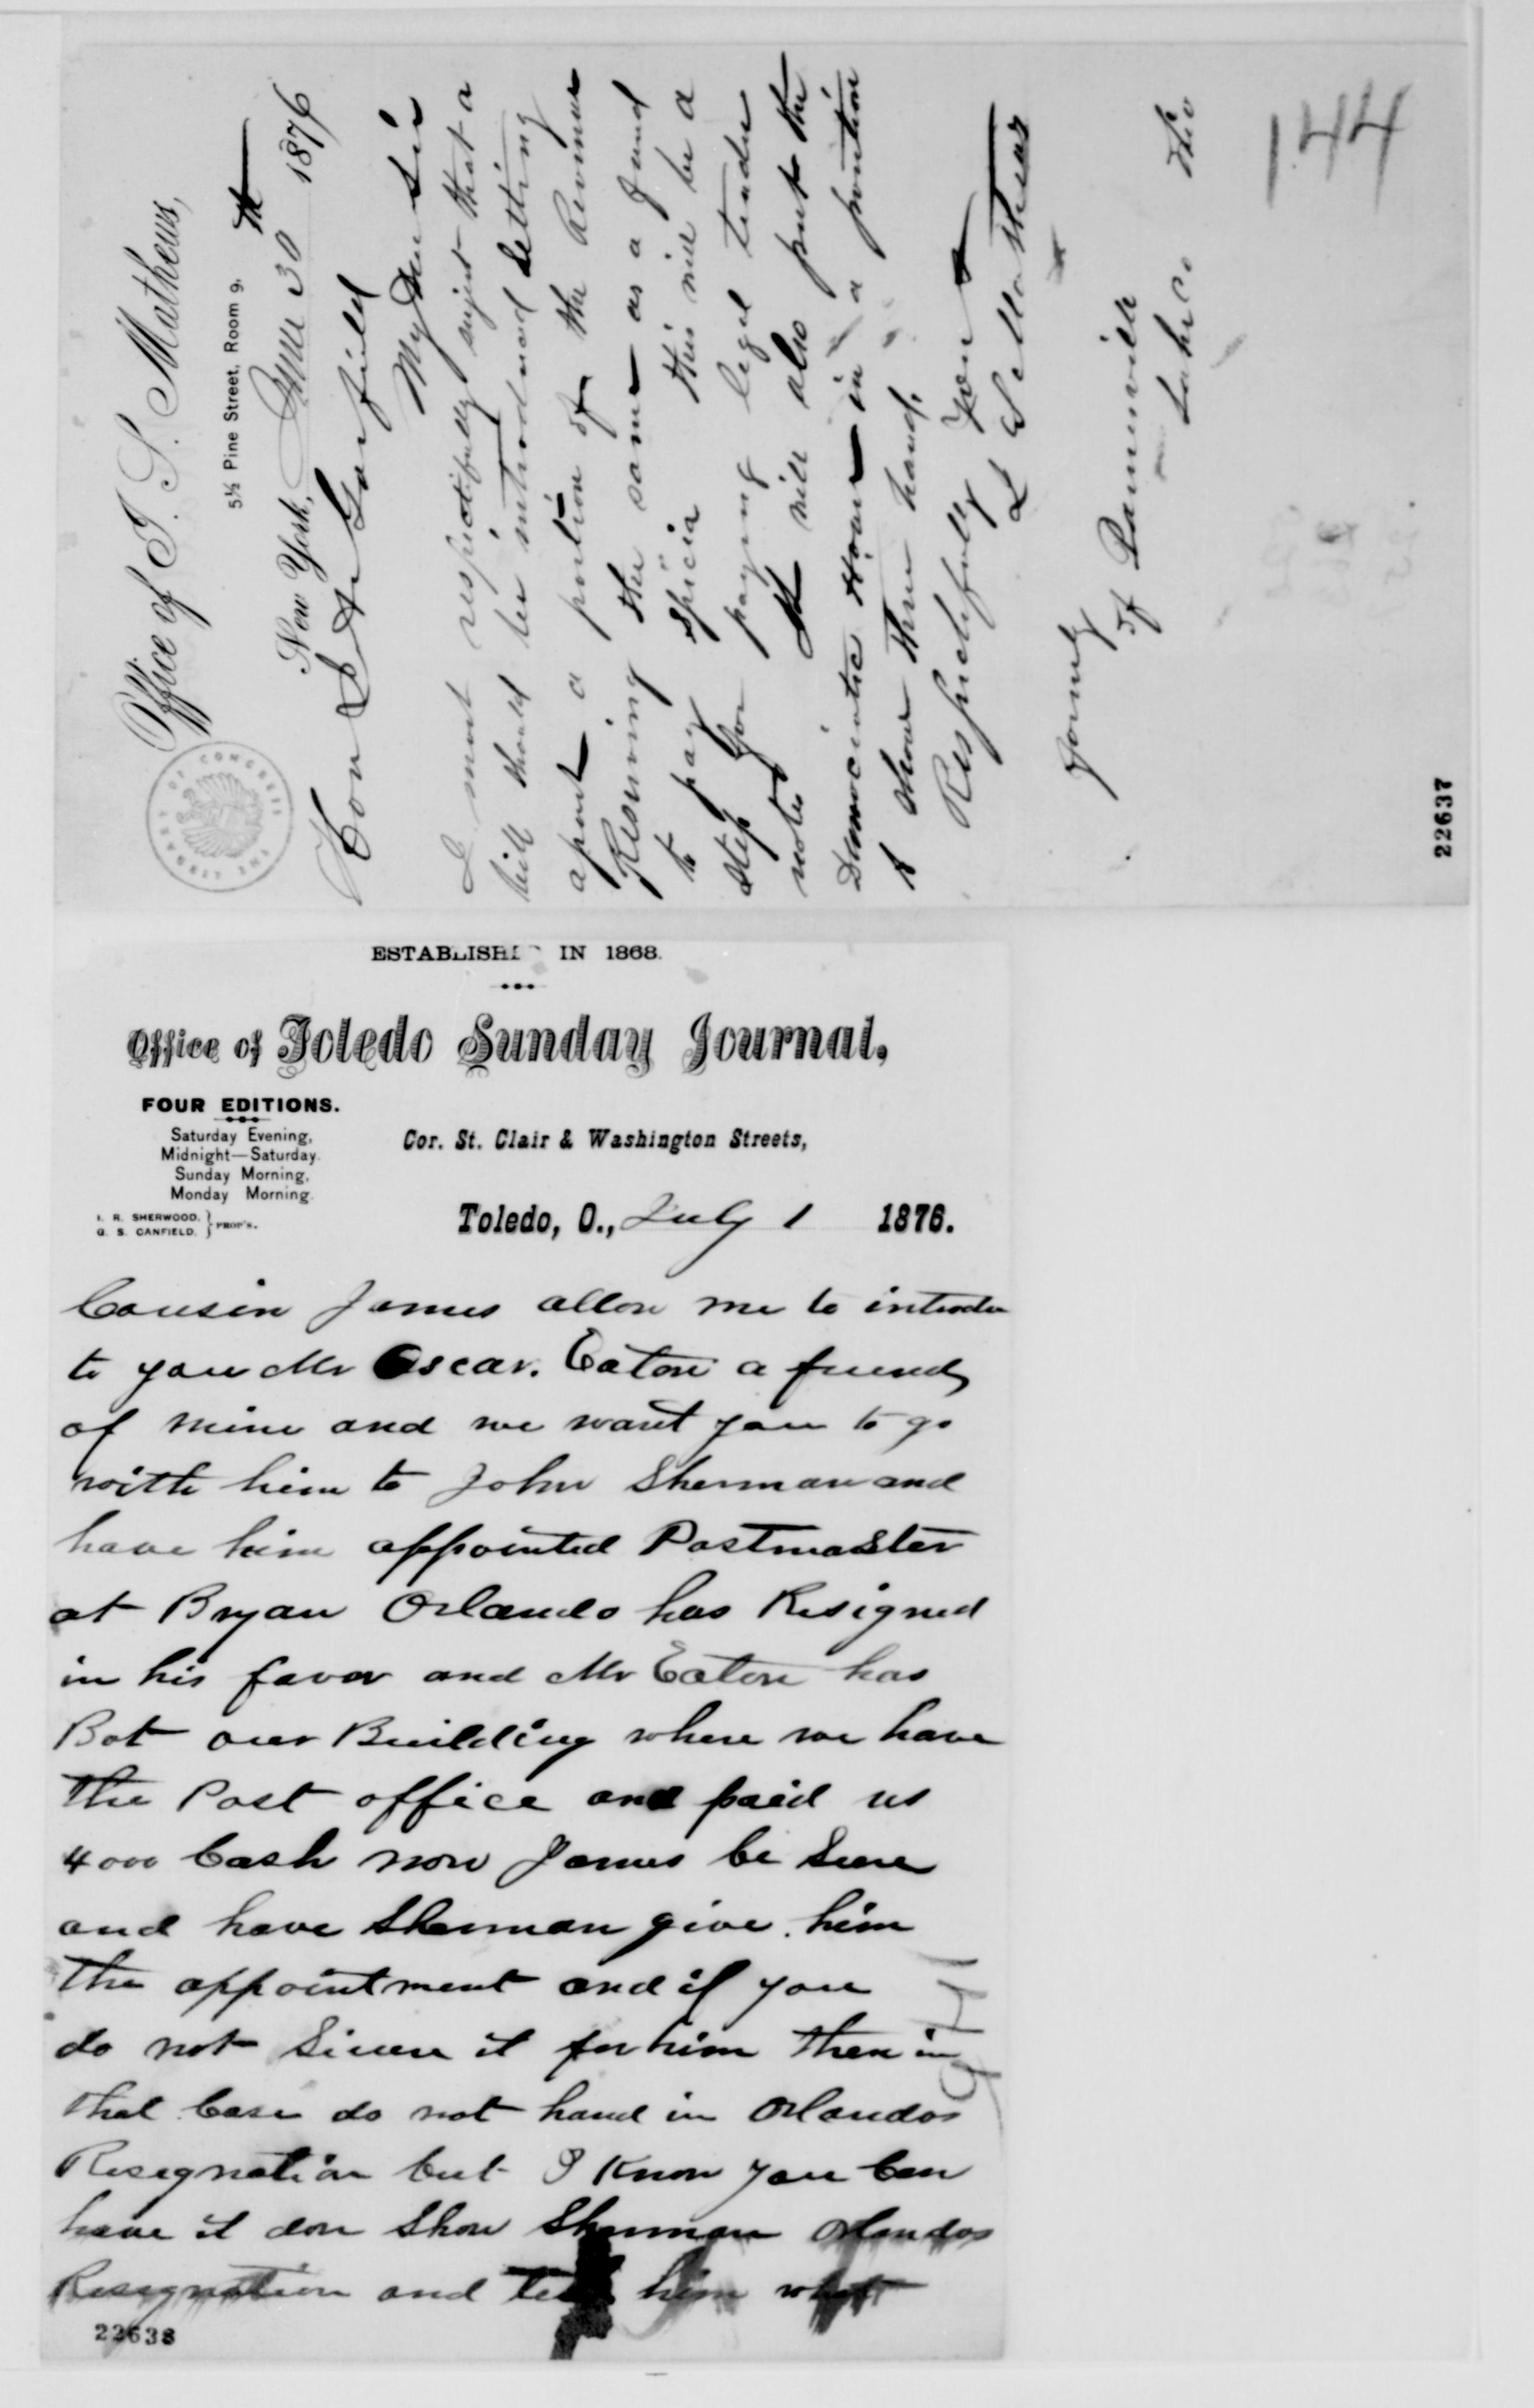 Office of J. S. Mathews,
5½ Pine Street, Room 9,
New York, June 30th 1876
Hon J A Garfield
My Dear Sir
I most respectfully sujest that a
bill should be introduced setting
apart a portion of the Revenue
Reserving the same as a fund
to pay specia this will be a
step for paying legal tender
notes It will also put the
Democratic House in a position
to show their hand.
Respectfully Yours
J S Mathews
formerly
of Painesville
Lake Co Ohio
144
THE LIBRARY OF CONGRESS
22637
ESTABLISHED IN 1868.
Office of Toledo Sunday Journal,
FOUR EDITIONS.
Saturday Evening,
Midnight—Saturday.
Sunday Morning,
Monday Morning.
I. R. SHERWOOD,
G. S. CANFIELD, } PROP'S.
Cor. St. Clair & Washington Streets,
Toledo, O., July 1 1876.
Cousin James allow me to introdu
to you Mr Oscar. Eaton a friend
of mine and we want you to go
with him to John Sherman and
have him appointed Postmaster
at Bryan Orlando has Resigned
in his favor and Mr Eaton has
Bot our Building where we have
the Post office and paid us
4000 Cash now James be Sure
and have Sherman give him
the appointment and if you
do not Sicure it for him then in
that Case do not hand in Orlandos
Resignation but I Know you Can
have it don Show Sherman Orlandos
Resignation and tell him what
22638